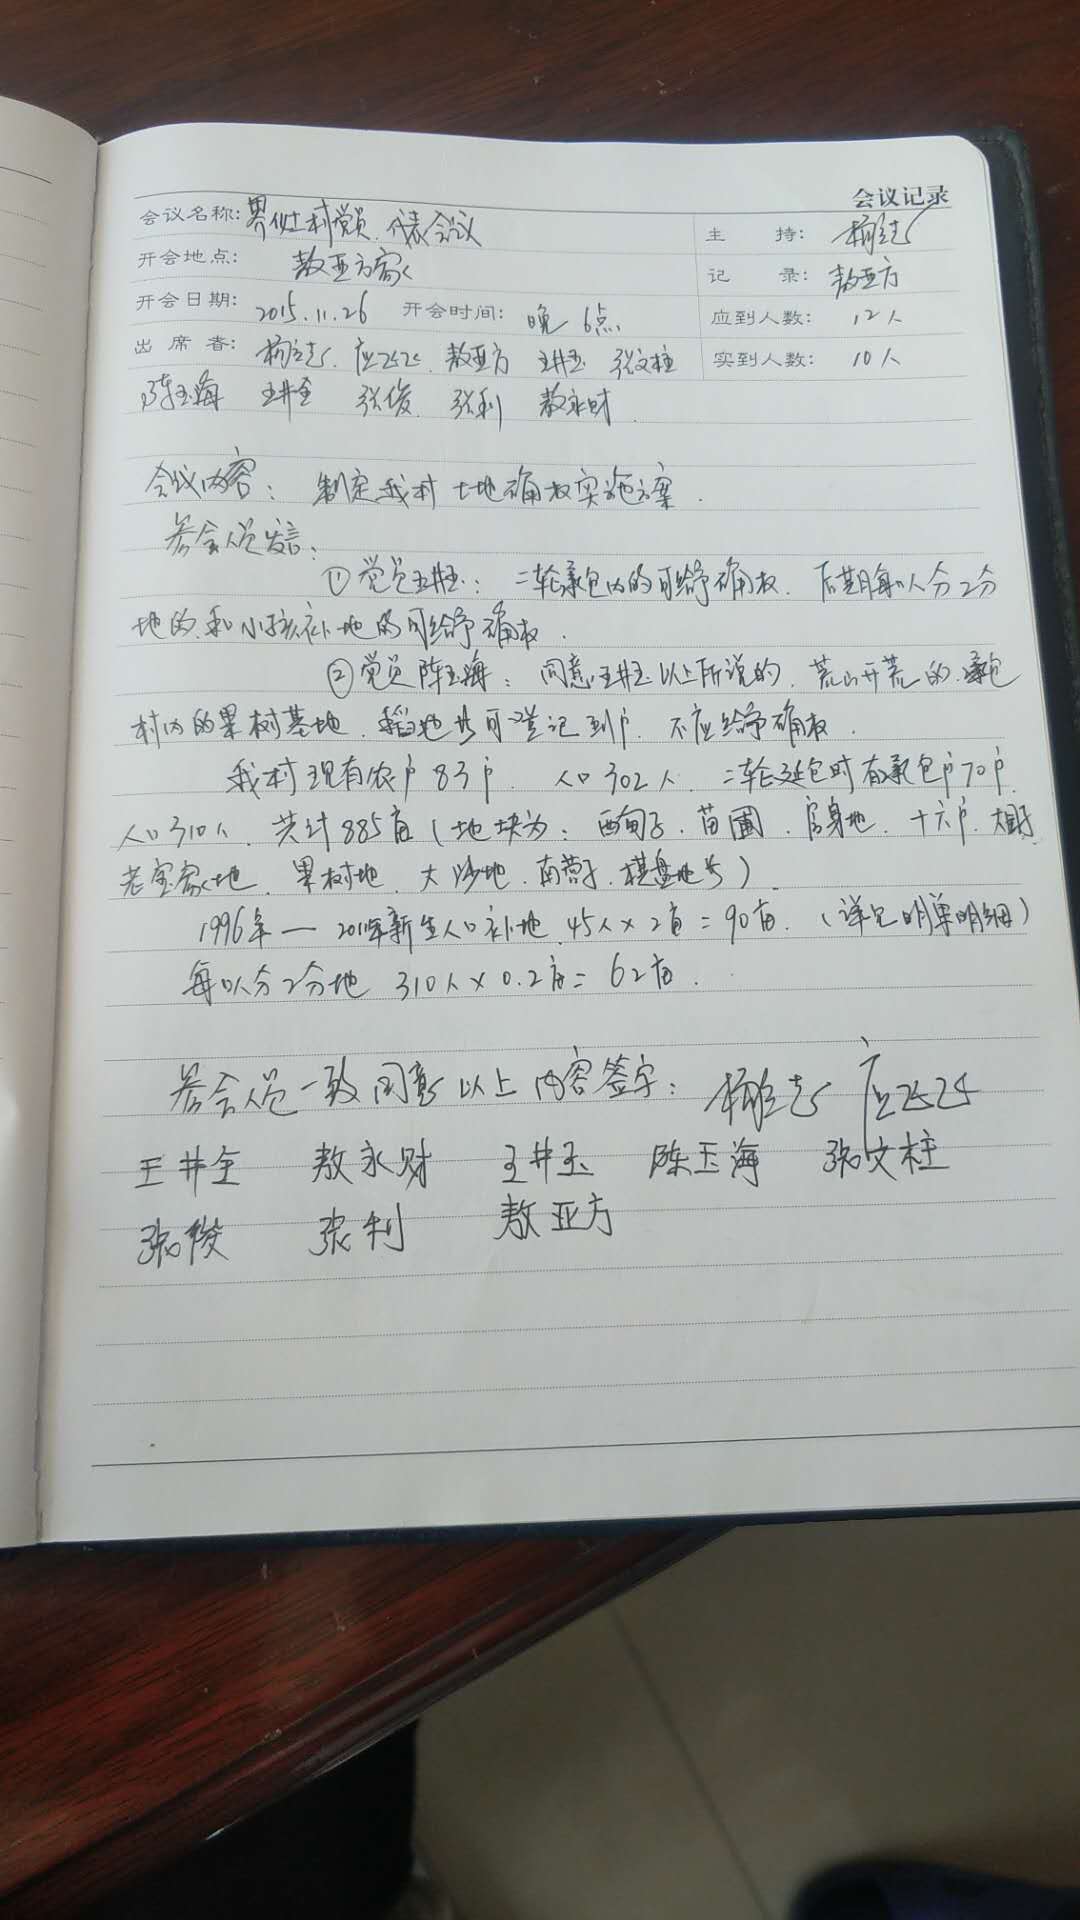 会议记录
会议名称: 界仕村党员、代表会议 主 持: 杨立志
开会地点: 敖亚方家 记 录: 敖亚方
开会日期: 2015.11.26 开会时间: 晚6点 应到人数: 12人
出席者: 杨立志 应 敖亚方 王井玉 张文柱 实到人数: 10人
陈玉海 王井全 张俊 张利 敖永财
会议内容: 制定我村土地确权实施方案.
参会人员发言:
①党员王井玉: 二轮承包内的可给予确权. 后期每口人分2分
地的和小孩补地的可给予确权.
②党员陈玉海: 同意王井玉以上所说的. 荒山开荒的.承包
村内的果树基地. 稻地等可登记到户. 不应给予确权.
我村现有农户83户. 人口302人. 二轮延包时有承包户70户.
人口310人. 共计885亩(地块为: 西甸子. 苗圃. 房身地. 十六户.
老宝家地. 果树地. 大沙地. 南营子. 棋盘地等).
1996年—2011年新生人口补地.45人×2亩=90亩. (详见明单明细)
每口人分2分地 310人×0.2亩=62亩.
参会人员一致同意以上内容签字: 杨立志 应
王井全 敖永财 王井玉 陈玉海 张文柱
张俊 张利 敖亚方